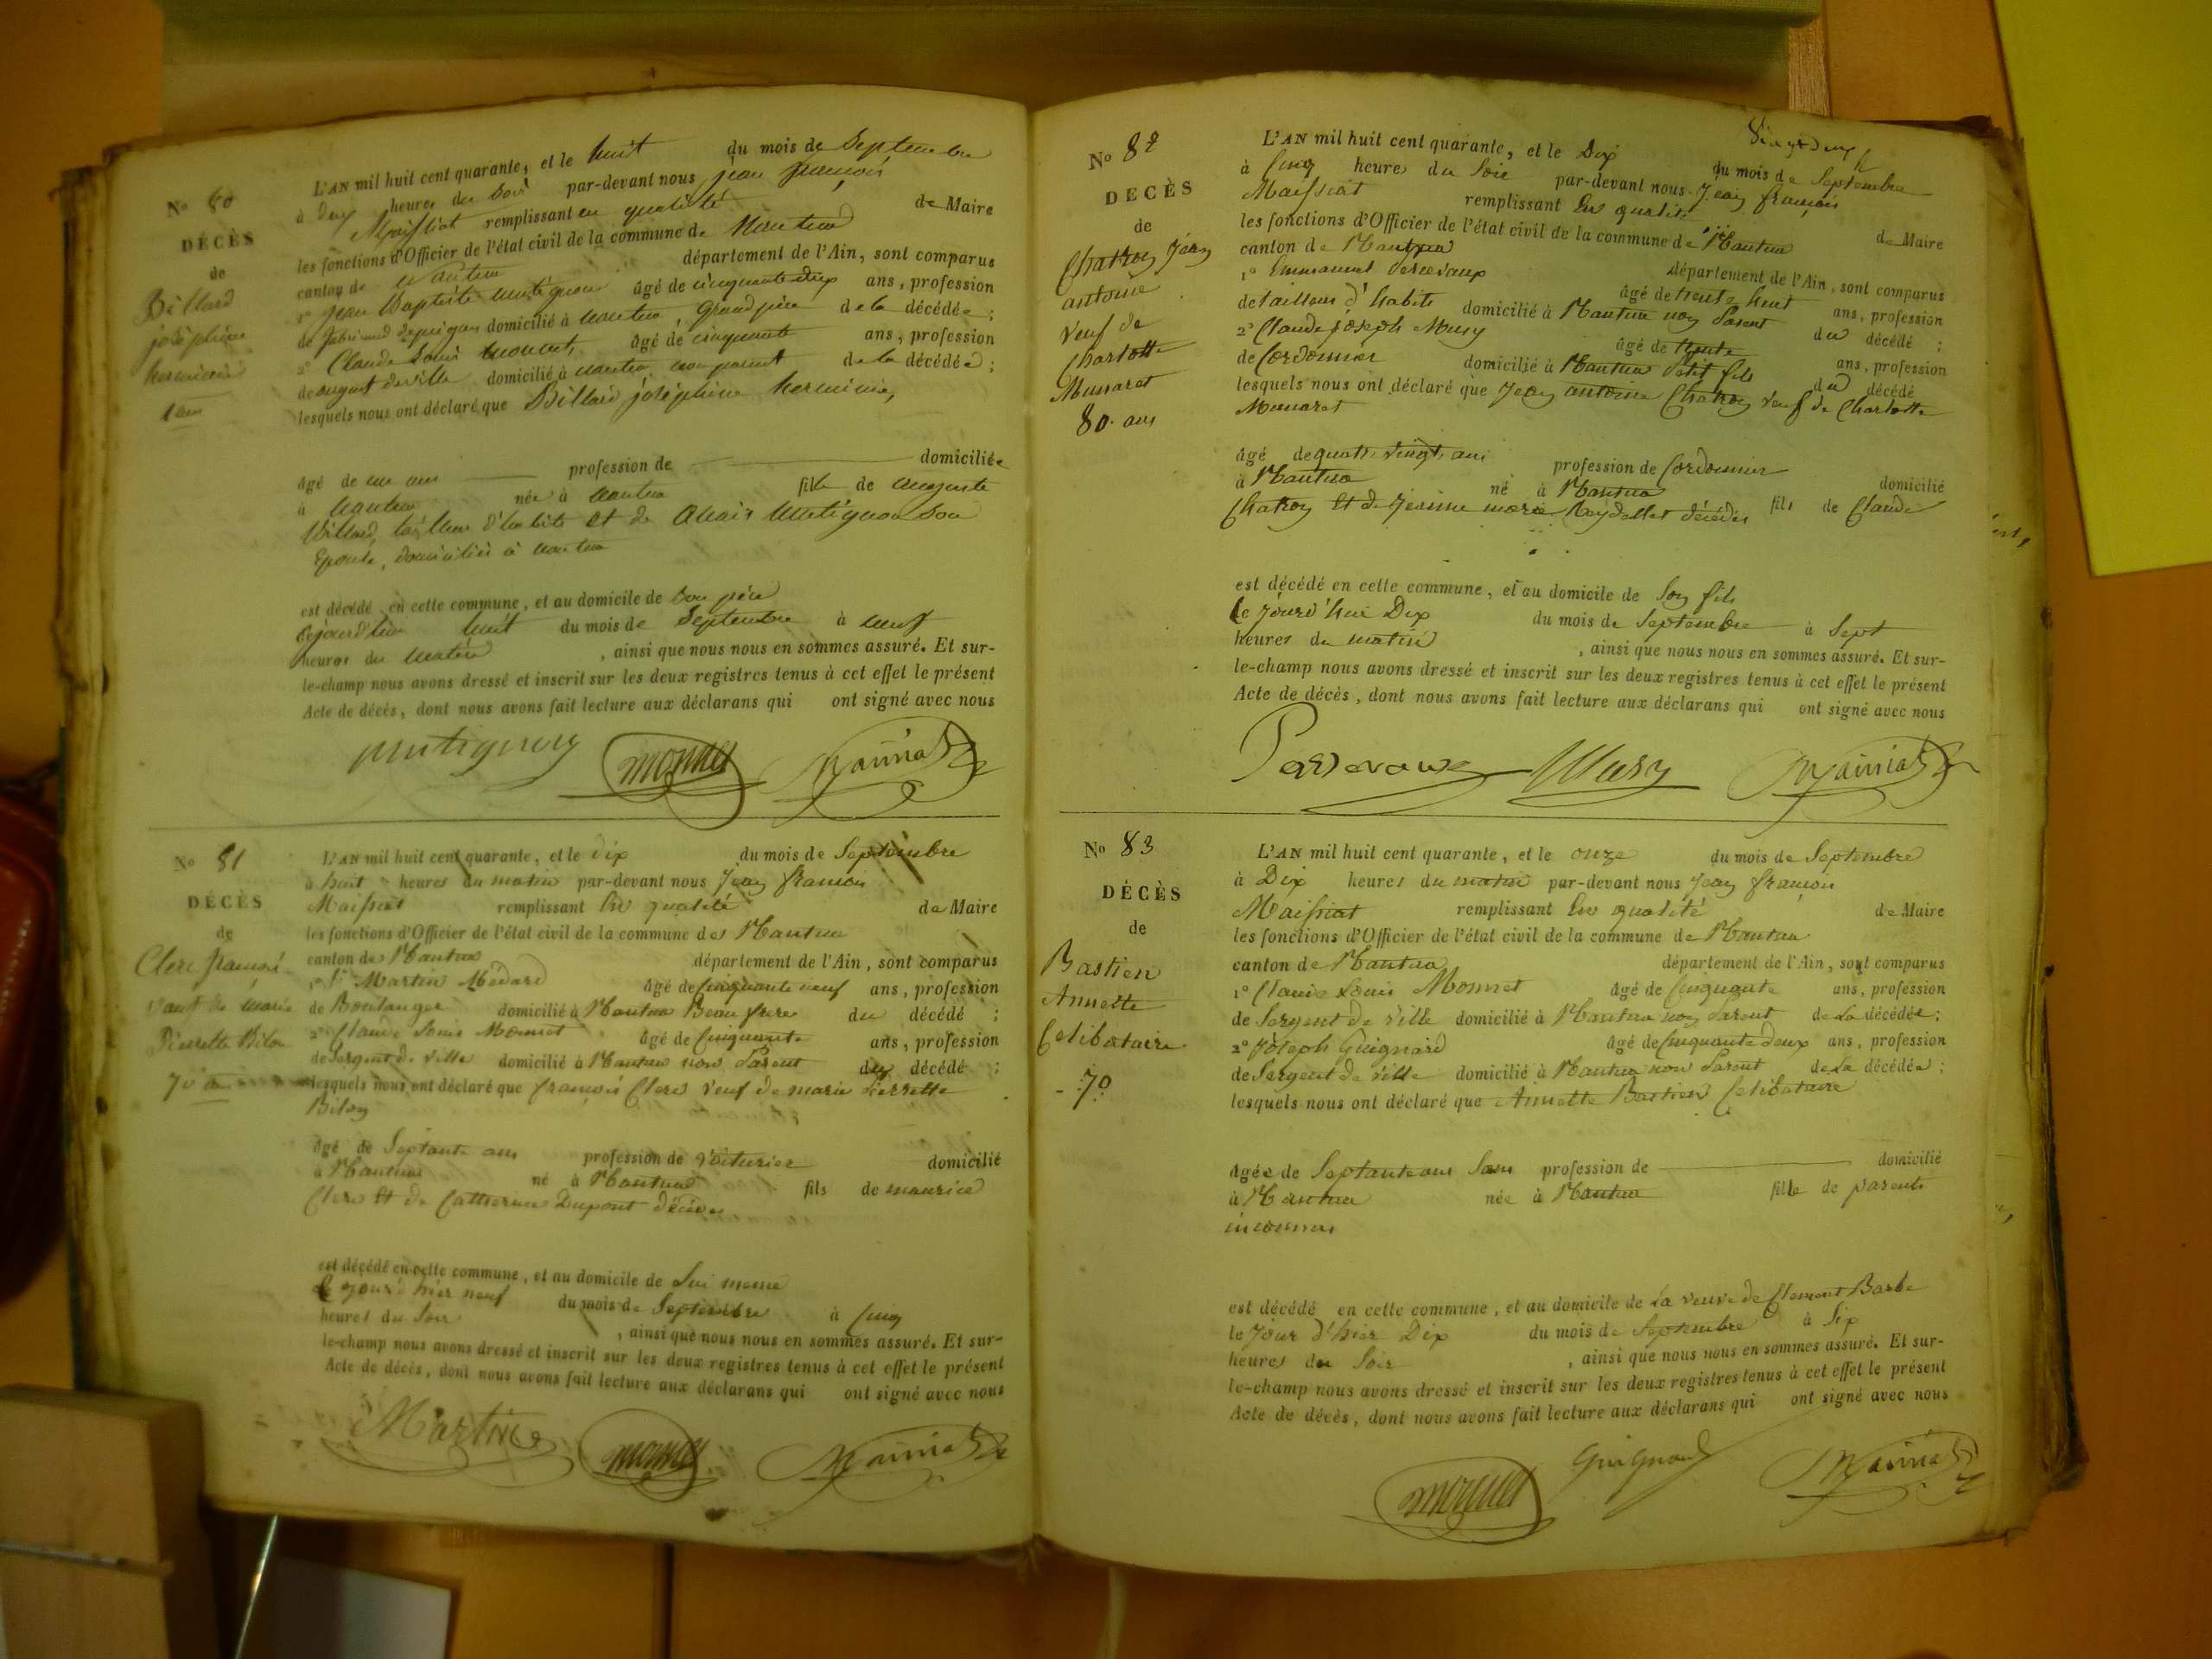 No 80
DÉCÈS
de
Billard
joséphine
herminie
1 an
L'AN mil huit cent quarante, et le huit du mois de Septembre
à deux heures du soir par-devant nous jean françois
Maissiat remplissant en qualité de Maire
les fonctions d'Officier de l'état civil de la commune de Nantua
canton de nantua département de l'Ain, sont comparus
1° jean Baptiste âgé de cinquante deux ans, profession
de domicilié à nantua, Grand père de la décédée ;
2° Claude Louis monnet âgé de cinquante ans, profession
de sergent de ville domicilié à nantua, non parent de la décédée ;
lesquels nous ont déclaré que Billard joséphine herminie,
âgé de un an profession de domiciliée
à nantua née à nantua fille de auguste
Billard, tailleur d'habits et de son
Epouse, domiciliés à nantua
est décédé en cette commune, et au domicile de son père
cejourd'hui huit du mois de Septembre à neuf
heures du matin , ainsi que nous nous en sommes assuré. Et sur-
le-champ nous avons dressé et inscrit sur les deux registres tenus à cet effet le présent
Acte de décès, dont nous avons fait lecture aux déclarans qui ont signé avec nous
monnet Maissiat
No 81
DÉCÈS
de
Clerc françois
veuf de marie
Pierrette Bilon
70 ans
L'AN mil huit cent quarante, et le dix du mois de Septembre
à huit heures du matin par-devant nous Jean françois
Maissiat remplissant En qualité de Maire
les fonctions d'Officier de l'état civil de la commune de Nantua
canton de Nantua département de l'Ain, sont comparus
1° Martin Médard âgé de cinquante neuf ans, profession
de Boulanger domicilié à Nantua Beau frere du décédé ;
2° Claude Louis Monnet âgé de Cinquante ans, profession
de Sergent de ville domicilié à Nantua non Parent du décédé ;
lesquels nous ont déclaré que françois Clerc veuf de marie Pierrette
Bilon
âgé de Septante ans profession de voiturier domicilié
à Nantua né à Nantua fils de maurice
Clerc Et de Catherine Dupont décédés
est décédé en cette commune, et au domicile de Lui meme
le jour d'hier neuf du mois de Septembre à Cinq
heures du Soir , ainsi que nous nous en sommes assuré. Et sur-
le-champ nous avons dressé et inscrit sur les deux registres tenus à cet effet le présent
Acte de décès, dont nous avons fait lecture aux déclarans qui ont signé avec nous
Martin monnet Maissiat
No 82
DÉCÈS
de
Chatron Jean
antoine
veuf de
Charlotte
Munaret
80 ans
L'AN mil huit cent quarante, et le Dix du mois de Septembre
à Cinq heures du Soir par-devant nous Jean françois
Maissiat remplissant En qualité de Maire
les fonctions d'Officier de l'état civil de la commune de Nantua
canton de Nantua département de l'Ain, sont comparus
1° Emmanuel Perrevaux âgé de trente huit ans, profession
de tailleur d'habits domicilié à Nantua non Parent du décédé ;
2° Claude joseph Musy âgé de trente ans, profession
de Cordonnier domicilié à Nantua Petit fils du décédé
lesquels nous ont déclaré que Jean antoine Chatron veuf de Charlotte
Munaret
âgé de quatre vingts ans profession de Cordonnier domicilié
à Nantua né à Nantua fils de Claude
Chatron Et de Jeanne marie Reydellet décédés
est décédé en cette commune, et au domicile de Son fils
le jourd'hui Dix du mois de Septembre à Sept
heures du matin , ainsi que nous nous en sommes assuré. Et sur-
le-champ nous avons dressé et inscrit sur les deux registres tenus à cet effet le présent
Acte de décès, dont nous avons fait lecture aux déclarans qui ont signé avec nous
Perrevaux Musy Maissiat
No 83
DÉCÈS
de
Bastien
Annette
Celibataire
70
L'AN mil huit cent quarante, et le onze du mois de Septembre
à Dix heures du matin par-devant nous Jean françois
Maissiat remplissant En qualité de Maire
les fonctions d'Officier de l'état civil de la commune de Nantua
canton de Nantua département de l'Ain, sont comparus
1° Claude Louis Monnet âgé de Cinquante ans, profession
de Sergent de ville domicilié à Nantua non Parent de La décédée ;
2° Joseph Guignard âgé de Cinquante deux ans, profession
de Sergent de ville domicilié à Nantua non Parent de La décédée ;
lesquels nous ont déclaré que Annette Bastien Celibataire
âgée de Septante ans Sans profession de domicilié
à Nantua née à Nantua fille de parents
inconnus
est décédé en cette commune, et au domicile de La veuve de Clement Barbe
le Jour d'hier Dix du mois de Septembre à Six
heures du Soir , ainsi que nous nous en sommes assuré. Et sur-
le-champ nous avons dressé et inscrit sur les deux registres tenus à cet effet le présent
Acte de décès, dont nous avons fait lecture aux déclarans qui ont signé avec nous
monnet Guignard Maissiat